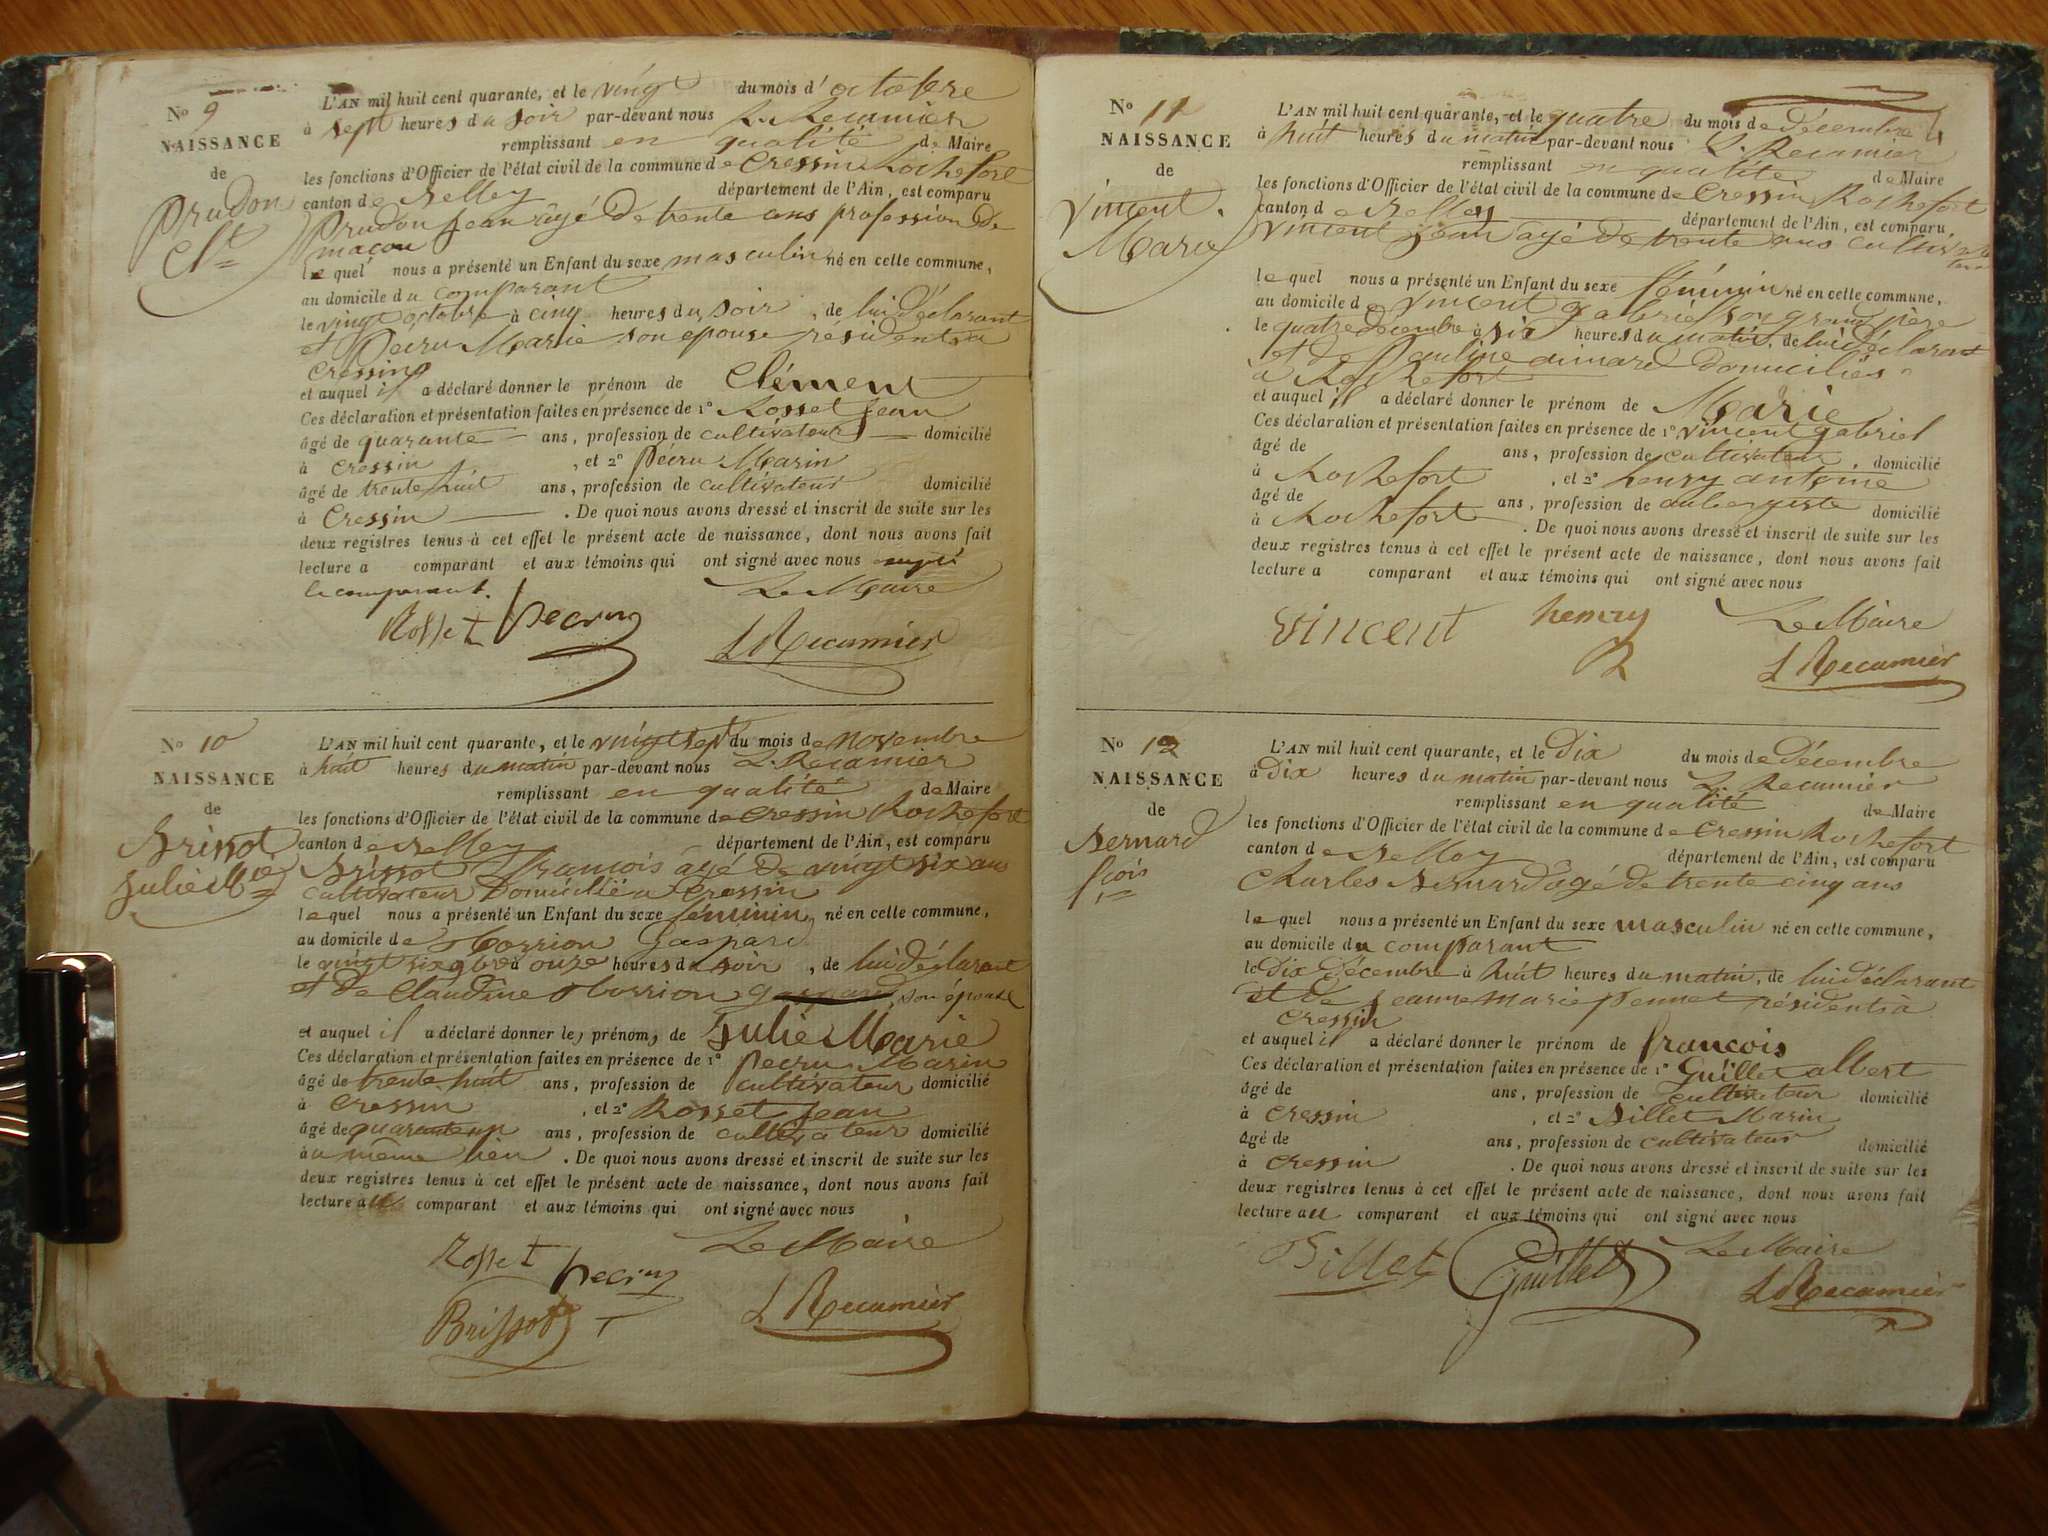 No 9
NAISSANCE
de
Prudon
Clt
L'AN mil huit cent quarante, et le vingt du mois d'octobre
à sept heures du soir par-devant nous L. Recamier
remplissant en qualité de Maire
les fonctions d'Officier de l'état civil de la commune de Cressin Rochefort
canton de Belley département de l'Ain, est comparu
Prudon Jean âgé de trente ans profession de
maçon
lequel nous a présenté un Enfant du sexe masculin né en cette commune,
au domicile du comparant
le vingt octobre à cinq heures du soir, de lui déclarant
et Pecru Marie son epouse résidents à
Cressin
et auquel il a déclaré donner le prénom de Clément
Ces déclaration et présentation faites en présence de 1° Rosset Jean
âgé de quarante ans, profession de cultivateur domicilié
à Cressin, et 2° Pecru Marin
âgé de trente huit ans, profession de cultivateur domicilié
à Cressin. De quoi nous avons dressé et inscrit de suite sur les
deux registres tenus à cet effet le présent acte de naissance, dont nous avons fait
lecture a comparant et aux témoins qui ont signé avec nous
le comparant. Le Maire
Rosset Pecru L Recamier
No 10
NAISSANCE
de
Brissot
Julie Mie
L'AN mil huit cent quarante, et le vingt sept du mois de novembre
à huit heures du matin par-devant nous L. Recamier
remplissant en qualité de Maire
les fonctions d'Officier de l'état civil de la commune de Cressin Rochefort
canton de Belley département de l'Ain, est comparu
Brissot françois âgé de vingt six ans
cultivateur domicilié a Cressin
lequel nous a présenté un Enfant du sexe féminin, né en cette commune,
au domicile de Gaspard
le vingt six 9bre à onze heures du soir, de lui déclarant
et de Claudine son épouse
et auquel il a déclaré donner les prénoms de Julie Marie
Ces déclaration et présentation faites en présence de 1° Pecru Marin
âgé de trente huit ans, profession de cultivateur domicilié
à Cressin, et 2° Rosset Jean
âgé de quarante un ans, profession de cultivateur domicilié
à u même lieu. De quoi nous avons dressé et inscrit de suite sur les
deux registres tenus à cet effet le présent acte de naissance, dont nous avons fait
lecture au comparant et aux témoins qui ont signé avec nous
Le Maire
Rosset Pecru
Brissot L Recamier
No 11
NAISSANCE
de
Vincent
Marie
L'AN mil huit cent quarante, et le quatre du mois de décembre
à huit heures du matin par-devant nous L. Recamier
remplissant en qualité de Maire
les fonctions d'Officier de l'état civil de la commune de Cressin Rochefort
canton de Belley département de l'Ain, est comparu,
Vincent Jean âgé de trente ans cultiva
teur
lequel nous a présenté un Enfant du sexe féminin né en cette commune,
au domicile de Vincent gabriel son grand père
le quatre decembre à six heures du matin, de lui déclarant
et de Pauline aimard domiciliés
à Rochefort
et auquel il a déclaré donner le prénom de Marie
Ces déclaration et présentation faites en présence de 1° Vincent gabriel
âgé de ans, profession de cultivateur, domicilié
à Rochefort, et 2° henry antoine
âgé de ans, profession de aubergiste domicilié
à Rochefort. De quoi nous avons dressé et inscrit de suite sur les
deux registres tenus à cet effet le présent acte de naissance, dont nous avons fait
lecture a comparant et aux témoins qui ont signé avec nous
Vincent henry Le Maire
L Recamier
No 12
NAISSANCE
de
Bernard
fçois
L'AN mil huit cent quarante, et le Dix du mois de Décembre
à Dix heures du matin par-devant nous L Recamier
remplissant en qualité de Maire
les fonctions d'Officier de l'état civil de la commune de Cressin Rochefort
canton de Belley département de l'Ain, est comparu
Charles Bernard âgé de trente cinq ans
lequel nous a présenté un Enfant du sexe masculin né en cette commune,
au domicile du comparant
le Dix Décembre à huit heures du matin, de lui déclarant
et de Jeanne Marie Pennet résidents à
Cressin
et auquel il a déclaré donner le prénom de françois
Ces déclaration et présentation faites en présence de 1° Guillet albert
âgé de ans, profession de cultivateur domicilié
à Cressin, et 2° Billet Marin
âgé de ans, profession de cultivateur domicilié
à Cressin. De quoi nous avons dressé et inscrit de suite sur les
deux registres tenus à cet effet le présent acte de naissance, dont nous avons fait
lecture au comparant et aux témoins qui ont signé avec nous
Billet Guillet Le Maire
L Recamier